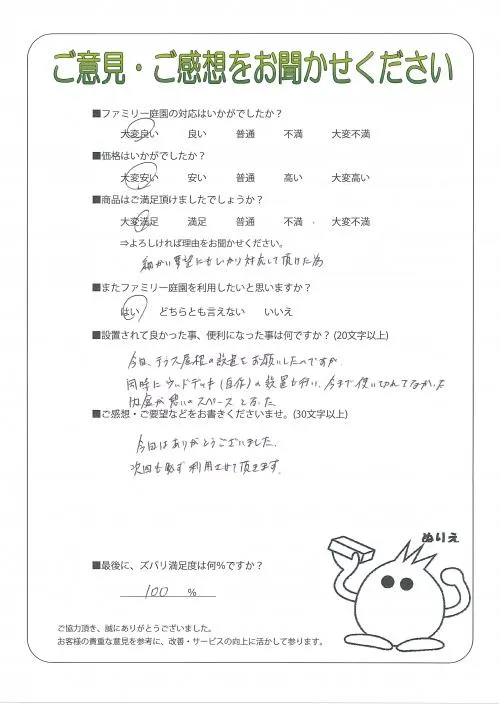 ご意見・ご感想をお聞かせください
■ファミリー庭園の対応はいかがでしたか？
大変良い 良い 普通 不満 大変不満
■価格はいかがでしたか？
大変安い 安い 普通 高い 大変高い
■商品はご満足頂けましたでしょうか？
大変満足 満足 普通 不満 大変不満
⇒よろしければ理由をお聞かせください。
細かい要望にもしっかり対応して頂けた為
■またファミリー庭園を利用したいと思いますか？
はい どちらとも言えない いいえ
■設置されて良かった事、便利になった事は何ですか？(20文字以上)
今回、テラス屋根の設置をお願いしたのですが、
同時にウッドデッキ(自作)の設置も行い、今まで使い切れてなかった
内庭が憩いのスペースとなった
■ご感想・ご要望などをお書きくださいませ。(30文字以上)
今回はありがとうございました。
次回も必ず利用させて頂きます。
ぬりえ
■最後に、ズバリ満足度は何％ですか？
100 ％
ご協力頂き、誠にありがとうございました。
お客様の貴重な意見を参考に、改善・サービスの向上に活かして参ります。